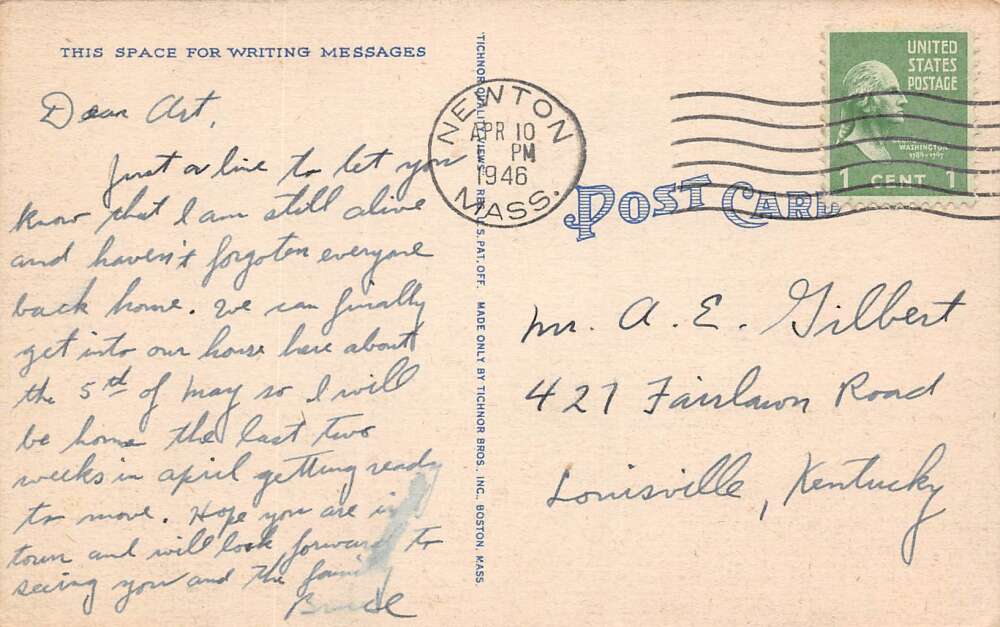 THIS SPACE FOR WRITING MESSAGES
Dear Art,
Just a line to let you
know that I am still alive
and haven't forgoten everyone
back home. We can finally
get into our house here about
the 5th of May so I will
be home the last two
weeks in april getting ready
to move. Hope you are in
town and will look forward to
seeing you and the family
Bruce
TICHNOR QUALITY VIEWS REG. U.S. PAT. OFF. MADE ONLY BY TICHNOR BROS. INC., BOSTON, MASS.
NEWTON
APR 10
PM
1946
MASS.
UNITED
STATES
POSTAGE
WASHINGTON
1789-1797
1 CENT 1
POST CARD
Mr. A. E. Gilbert
427 Fairlawn Road
Louisville, Kentucky